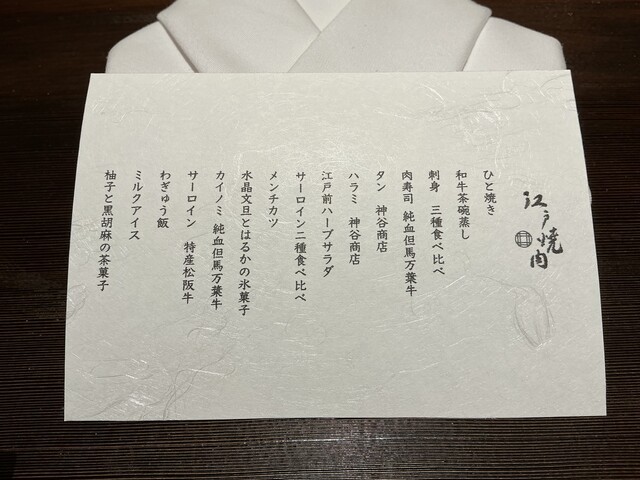 江戸焼肉
ひと焼き
和牛茶碗蒸し
刺身　三種食べ比べ
肉寿司 純血但馬万葉牛
タン　神谷商店
ハラミ　神谷商店
江戸前ハーブサラダ
サーロイン二種食べ比べ
メンチカツ
水晶文旦とはるかの氷菓子
カイノミ 純血但馬万葉牛
サーロイン　特産松阪牛
わぎゅう飯
ミルクアイス
柚子と黒胡麻の茶菓子